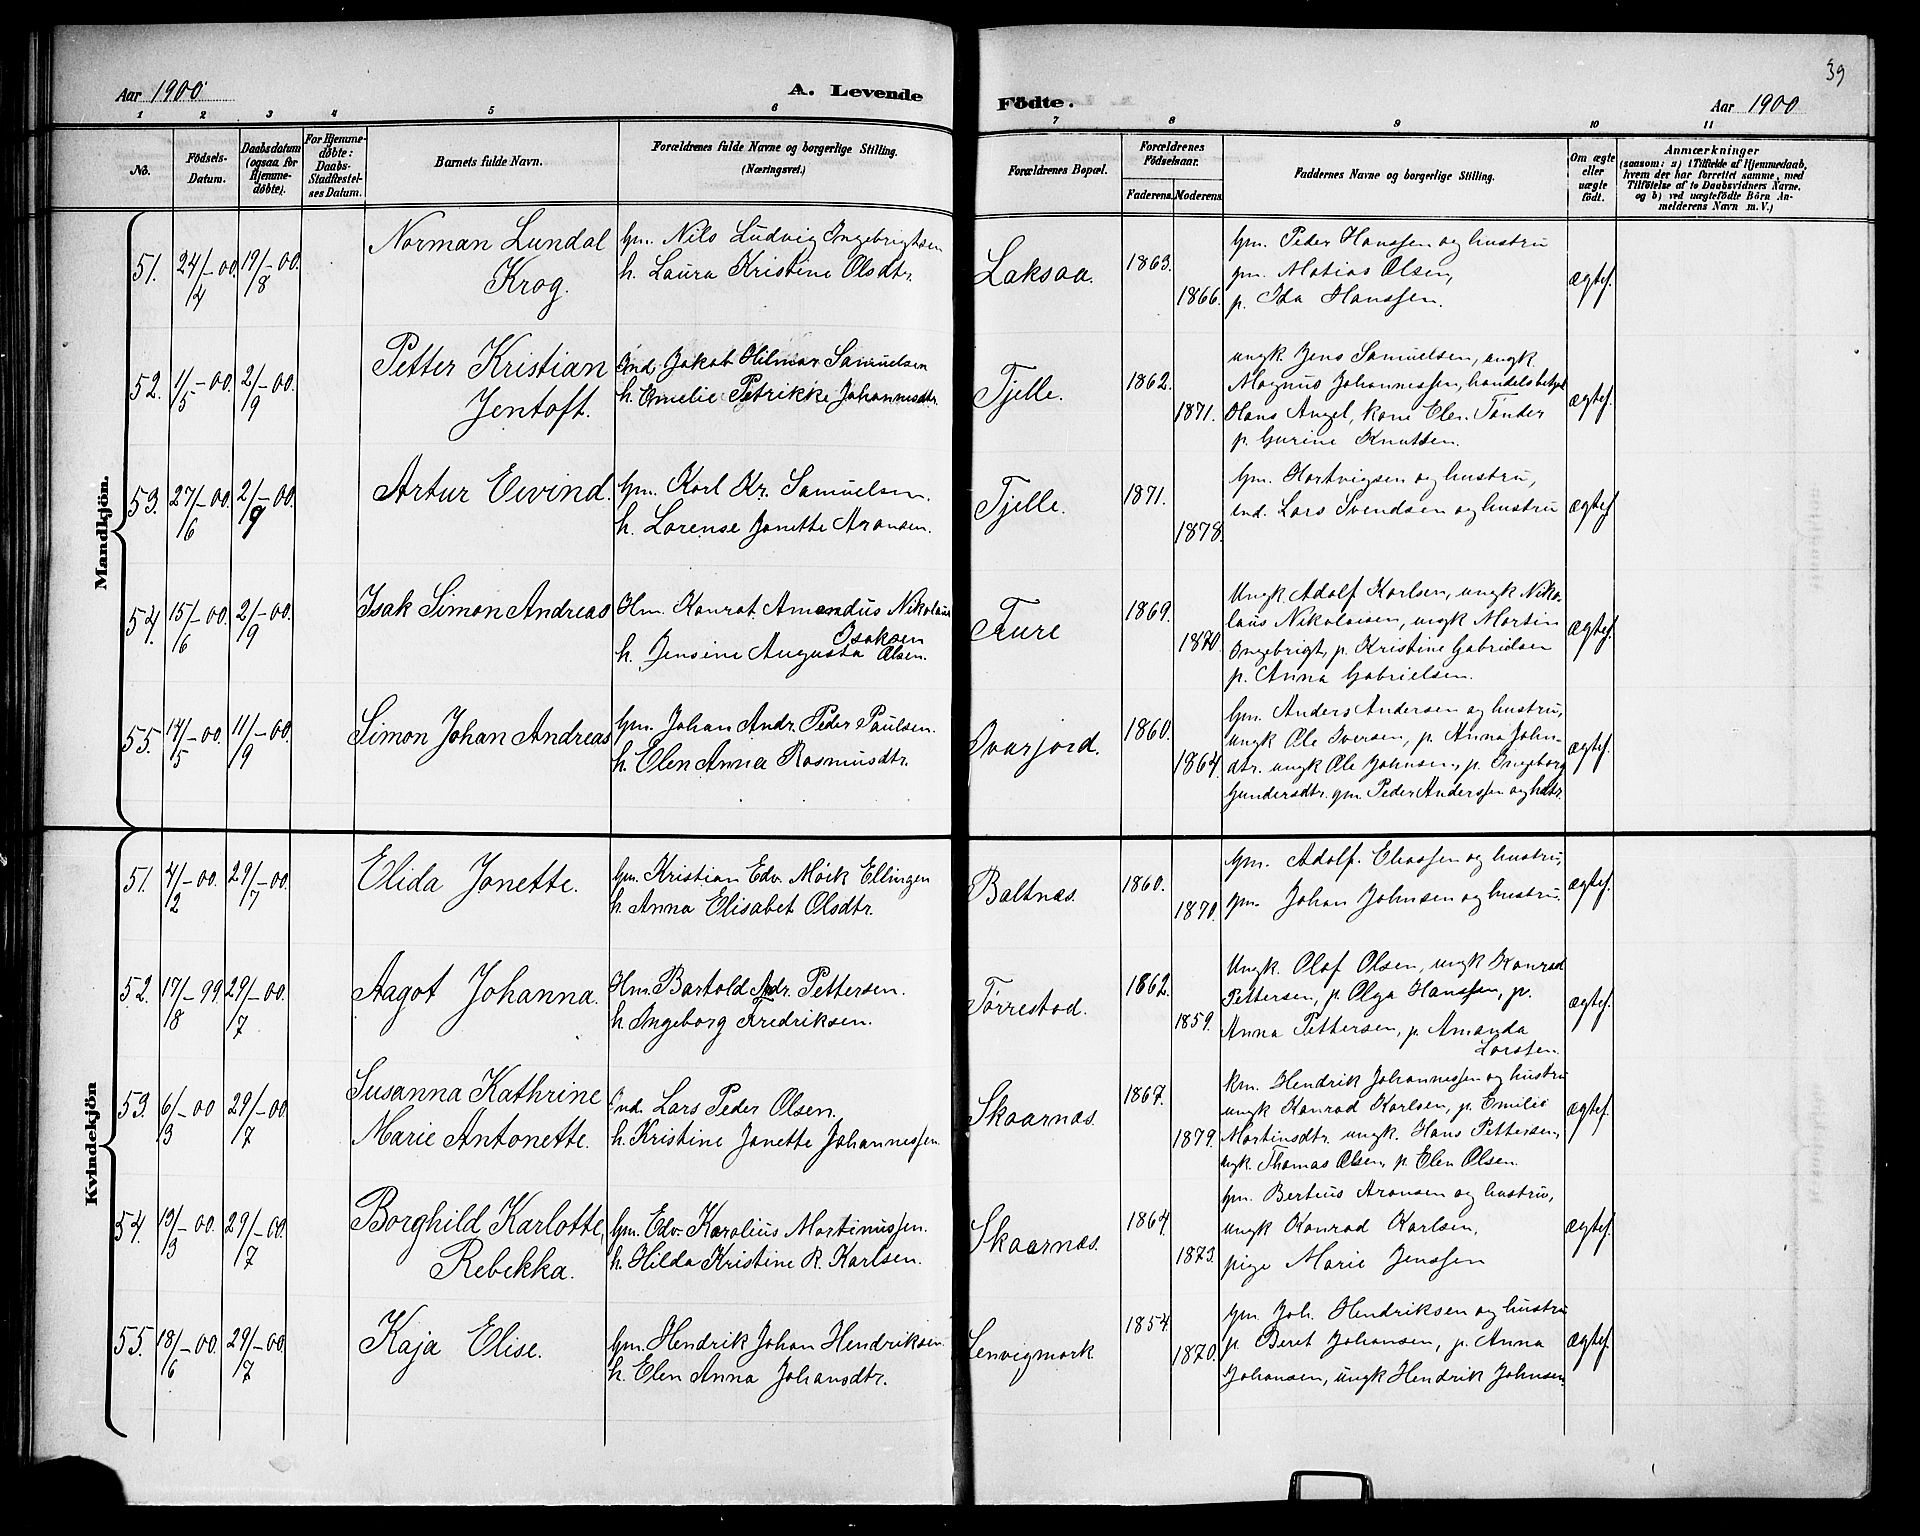 39
Aar 1900 A. Levende Födte. Aar 1900
1 2 3 4 5 6 7 8 9 10 11
No.
Födsels-
Datum.
Daabsdatum
(ogsaa for
Hjemme-
døbte).
For Hjemme-
døbte:
Daabs-
Stadfæstel-
ses Datum.
Barnets fulde Navn.
Forældrenes fulde Navne og borgerlige Stilling.
(Næringsvei.)
Forældrenes Bopæl.
Forældrenes
Födselsaar.
Faderens. Moderens.
Faddernes Navne og borgerlige Stilling.
Om ægte
eller
uægte
født.
Anmærkninger
(saasom: a) i Tilfælde af Hjemmedaab,
hvem der har forrettet samme, med
Tilföielse af to Daabsvidners Navne,
og b) ved uægtefödte Börn An-
melderens Navn m. V.)
Mandkjön.
51. 24/4-00. 19/8-00.
Norman Lundal
Krog.
Gm. Nils Ludvig Ingebrigtsen
h. Laura Kristine Olsdtr.
Laksaa. 1863. 1866.
Gm. Peder Hanssen og hustru
gm. Matias Olsen,
p. Ida Hanssen.
ægtef.
52. 1/5-00. 2/9-00.
Petter Kristian
Jentoft.
Ind. Jakob Hilmar Samuelsen
h. Emelie Petrikke Johannesdtr.
Tjelle. 1862. 1871.
ungk. Jens Samuelsen, ungk
Magnus Johannessen, handelsbetjel
Hans Angel, kone Elen Tønder
p. Gurine Knutsen.
ægtef.
53. 27/6-00. 2/9-00.
Artur Eivind.
Gm. Karl Kr. Samuelsen.
h. Lorense Jonette Aronsen.
Tjelle. 1871. 1878.
Gm. Hartvigsen og hustru,
ind. Lars Svendsen og hustru
ægtef.
54. 15/6-00. 2/9-00.
Isak Simon Andreas
Hm. Konrat Amandus Nikolaus
Isaksen
h. Jensine Augusta Olsen.
Fure 1869. 1870.
Ungk. Adolf Karlsen, ungk Niko-
laus Nikolaisen, ungk Martin
Ingebrigt, p. Kristine Gabrielsen
p. Anna Gabrielsen.
ægtef.
55. 14/5-00. 11/9-00.
Simon Johan Andreas
Gm. Johan Andr. Peder Paulsen.
h. Elen Anna Rasmusdtr.
Ivarjord. 1860. 1864.
Gm. Anders Andersen og hustru,
ungk Ole Iversen, p. Anna John-
dtr. ungk Ole Johnsen, p. Ingeborg
Gundersdtr. gm. Peder Anderssen og hstr.
ægtef.
Kvindekjön
51. 4/2-00. 29/7-00.
Elida Jonette.
Gm. Kristian Edv. Møik Ellingen
h. Anna Elisabet Olsdtr.
Baltnæs. 1860. 1870.
Gm. Adolf. Eliassen og hustru,
gm. Johan Johnsen og hustru.
ægtef.
52. 17/8-99. 29/7-00.
Aagot Johanna.
Hm. Bartold Andr. Pettersen.
h Ingeborg Fredriksen.
Tørrestad. 1862. 1859.
Ungk. Olaf Olsen, ungk Konrad
Pettersen, p. Olga Hanssen, p.
Anna Pettersen, p. Amanda
Larssen.
ægtef.
53. 6/3-00 29/7-00
Susanna Kathrine
Marie Antonette.
Ind. Lars Peder Olsen.
h. Kristine Jonette Johannessen
Skaarnæs. 1867. 1879.
km. Hendrik Johannessen og hustru
ungk Konrad Karlsen, p. Emilie
Martinsdtr. ungk. Hans Pettersen,
ungk. Thomas Olsen, p. Elen Olsen.
ægtef.
54. 13/3-00. 29/7-00.
Borghild Karlotte,
Rebekka.
Gm. Edv. Karolius Martinussen.
h. Hilda Kristine R. Karlsen.
Skaarnæs. 1864. 1873.
Gm. Bertius Aronsen og hustru,
ungk Konrad Karlsen,
pige Marie Jenssen
ægtef.
55. 18/6-00. 29/7-00.
Kaja Elise.
Gm. Hendrik Johan Hendriksen.
h. Elen Anna Johansdtr.
Lenvigmark. 1854. 1870.
Gm. Joh. Hendriksen og hustru
p. Beret Johansen, p. Anna
Johansen, ungk Hendrik Johnsen.
ægtef.